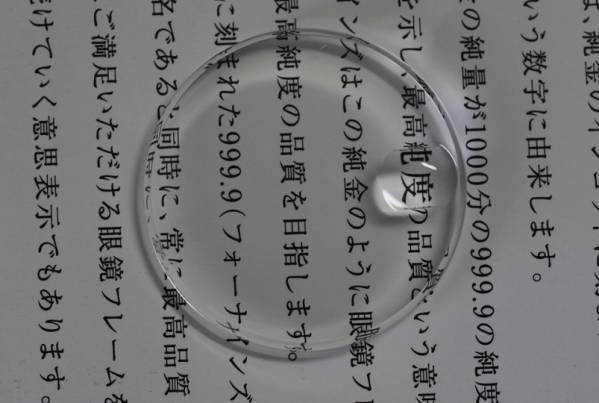 、純金のインゴットに刻
いう数字に由来します。
の純量が1000分の999.9の純度
を示し、最高純度の品質という意味
インズはこの純金のように眼鏡フレ
最高純度の品質を目指します。
に刻まれた999.9(フォーナインズ
名であると同時に、常に最高品質
ご満足いただける眼鏡フレームを
けていく意思表示でもあります。